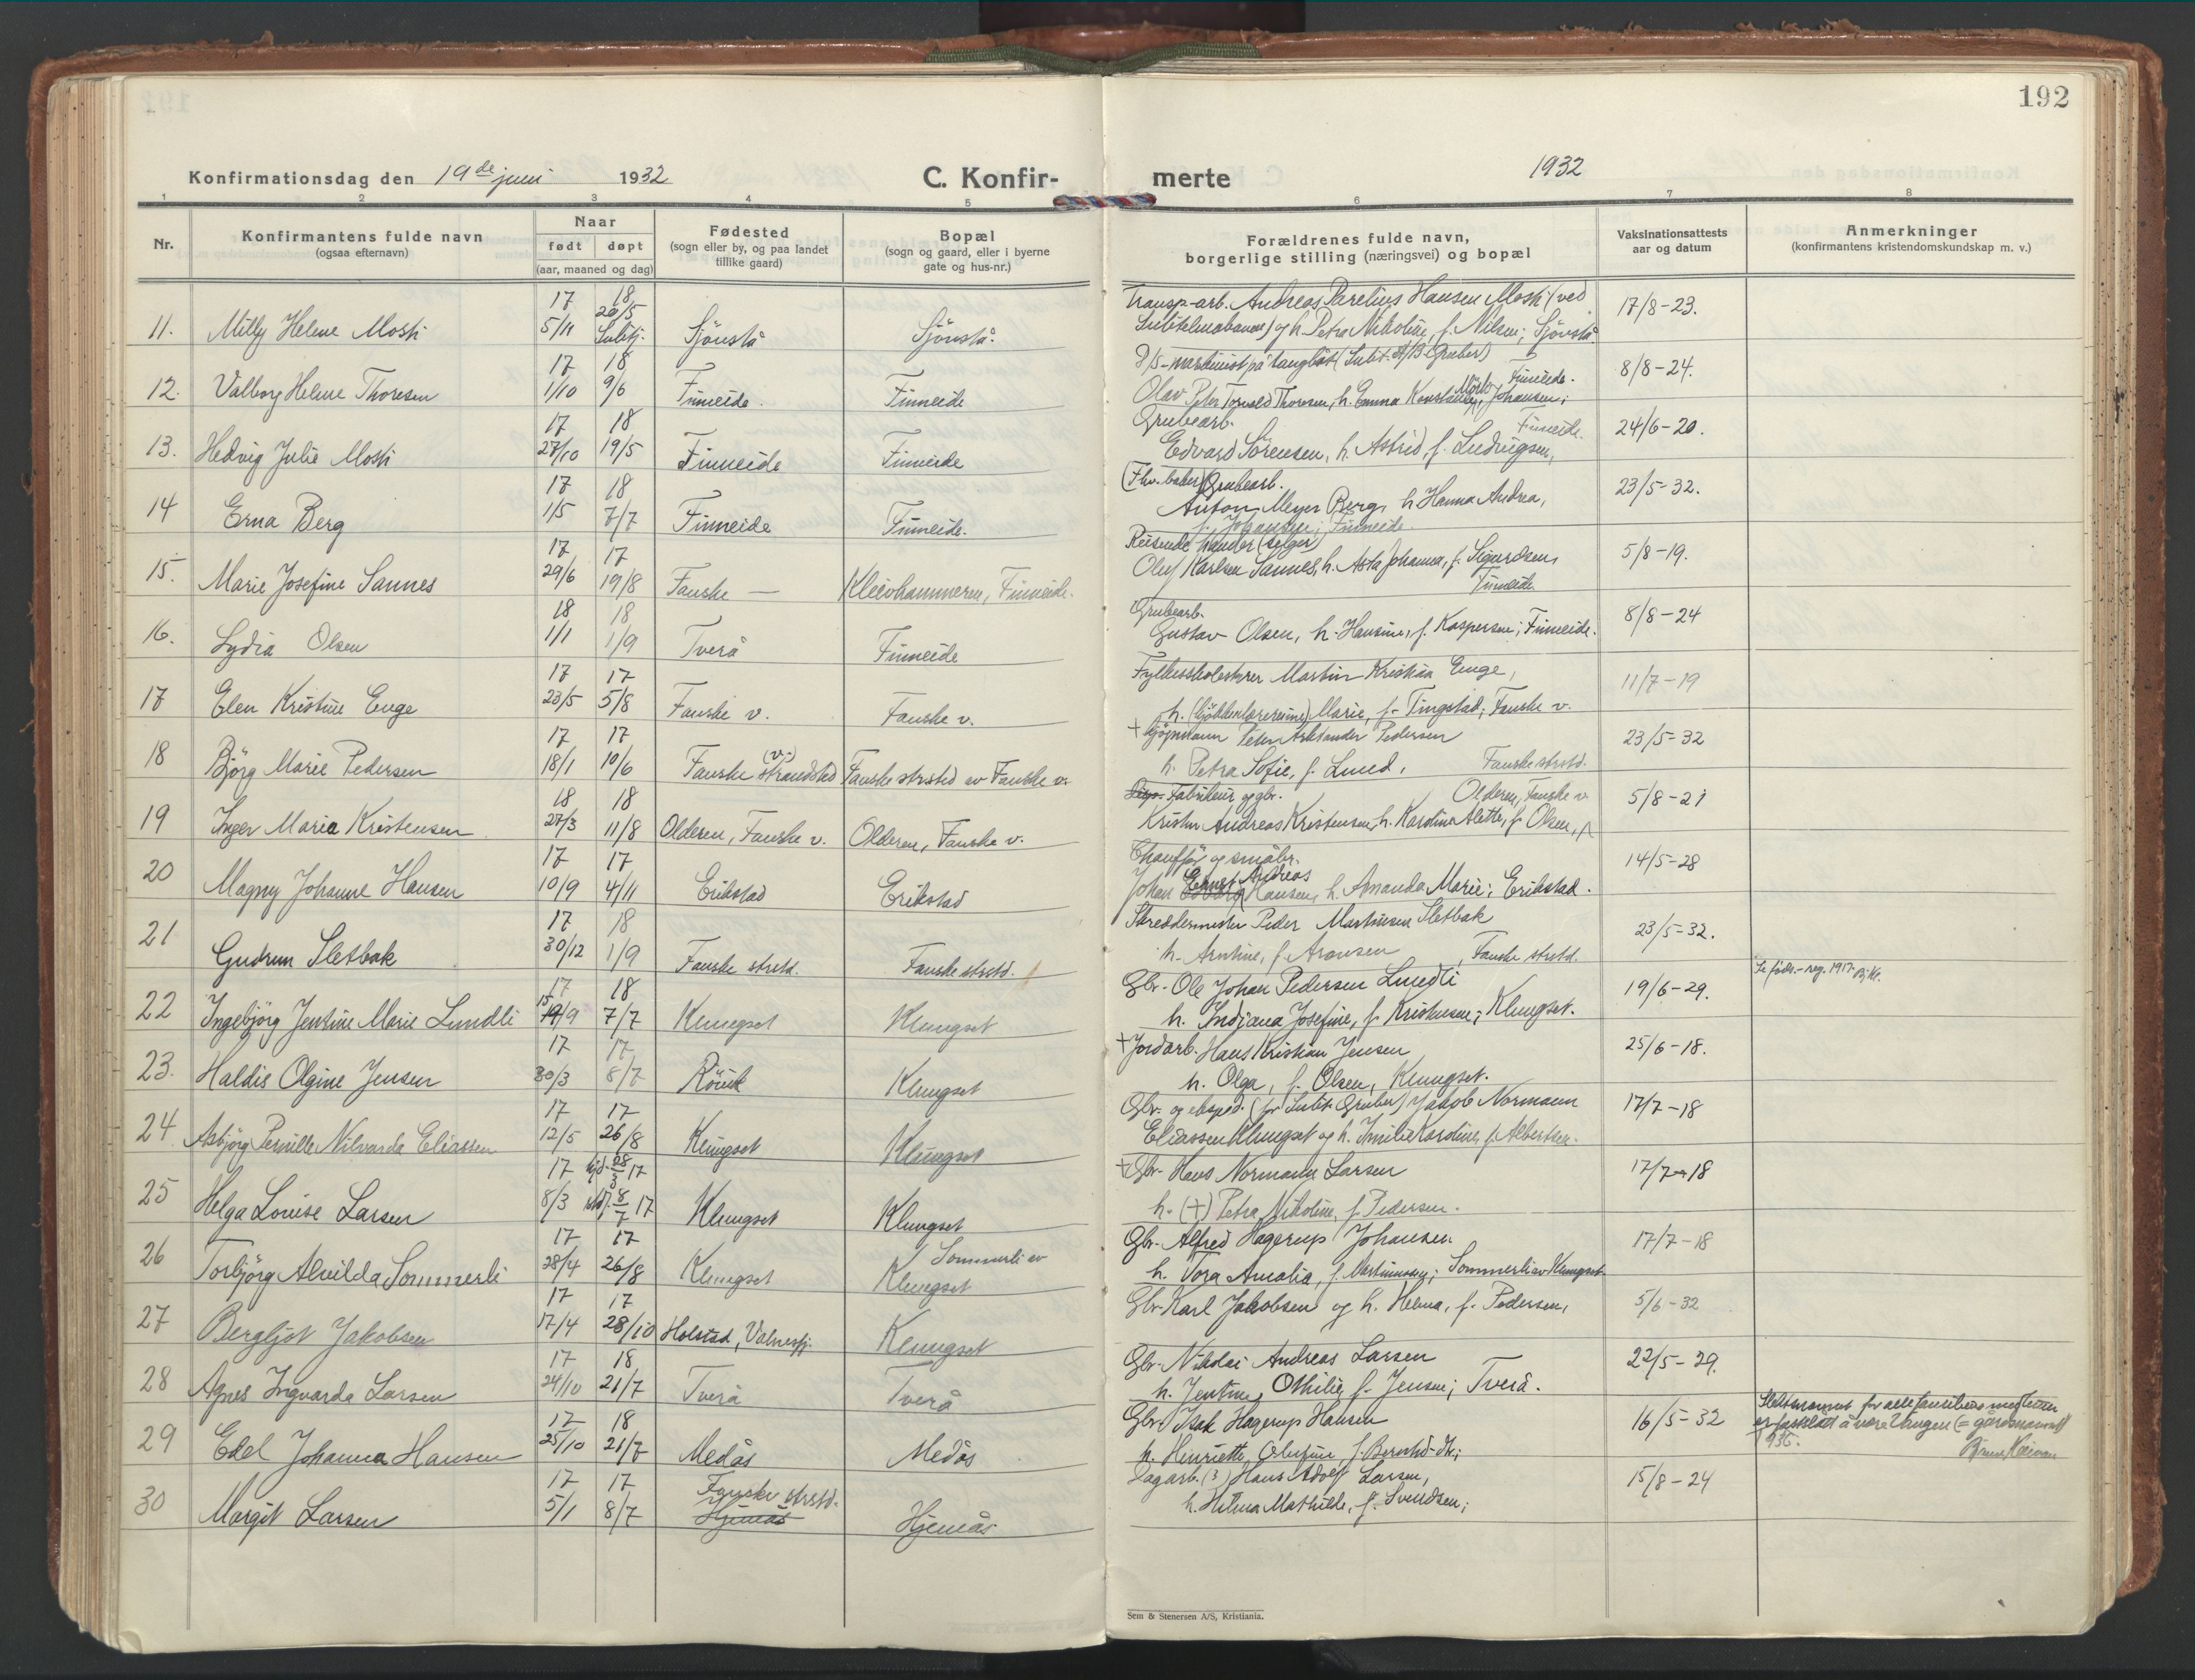 192
Konfirmationsdag den 19de juni 1932
C. Konfir-
merte
1932
1 2 3 4 5 6 7 8
Nr.
Konfirmantens fulde navn
(ogsaa efternavn)
Naar
født døpt
(aar, maaned og dag)
Fødested
(sogn eller by, og paa landet
tillike gaard)
Bopæl
(sogn og gaard, eller i byerne
gate og hus-nr.)
Forældrenes fulde navn,
borgerlige stilling (næringsvei) og bopæl
Vaksinationsattests
aar og datum
Anmerkninger
(konfirmantens kristendomskundskap m. v.)
17 18 Transp-arb. Andreas Parelius Hansen Mosti (ved
11. Milly Helene Mosti 5/11 26/5 Sulitj. Sjönstå Sjönstå. Sulitelmabanen) og h. Petra Nikoline, f. Nilsen; Sjönstå 17/8-23.
17 18 D/S-maskinist på taugbåt (Sulit. A/B Gruber)
12. Valborg Helene Thoresen 1/10 9/6 Finneide. Finneide Olav Peter Torvald Thoresen, h. Emma Konstanse, Mörk Johansen; Finneide. 8/8-24.
17 18 Grubearb. Finneide.
13. Hedvig Julie Mosti 27/10 19/5 Finneide Finneide Edvard Sörensen, h. Astrid, f. Ludvigsen, 24/6-20.
17 18 (Fhv. baker) Grubearb.
14 Erna Berg 1/5 7/7 Finneide Finneide. Anton Meyer Berg, h Hanna Andrea, 23/5-32.
f. Johansen; Finneide.
17 17 Reisende handler (selger)
15. Marie Josefine Sannes 29/6 19/8 Fauske — Kleivhammeren, Finneide. Oluf Karlsen Sannes, h. Asta Johanna, f. Sigurdsen, Finneide 5/8-19.
18 18 Grubearb.
16. Lydia Olsen 1/1 1/9 Tverå Finneide Gustav Olsen, h. Hansine, f. Kaspersen; Finneide. 8/8-24
17 17 Fylkesskolestyrer Martin Kristian Enge,
17 Elen Kristine Enge 23/5 5/8 Fauske v. Fauske v. h. (kjökkenlærerinne) Marie, f. Tingstad; Fauske v. 11/7-19
17 17 + kjöpmann Peter Aleksander Pedersen
18 Björg Marie Pedersen 18/1 10/6 Fauske (v.) strandsted Fauske strsted av Fauske v. h. Petra Sofie, f. Lund, Fauske strstd. 23/5-32
18 18 Fabrikeier og gbr. Olderen, Fauske v.
19 Inger Maria Kristensen 27/3 11/8 Olderen, Fauske v. Olderen, Fauske v. Krister Andreas Kristensen, h. Karoline Alette, f. Olsen, 5/8-21
17 17 Chauffør og småbr.
20 Magny Johanne Hansen 10/9 4/11 Erikstad Erikstad Johan Ernst Andreas Hansen, h. Amanda Marie; Erikstad. 14/5-28
17 18 Skreddermester Peder Martinsen Sletbak
21 Gudrun Sletbak 30/12 1/9 Fauske strstd. Fauske strstd. h. Arntine, f. Aronsen, Fauske strstd. 23/5-32.
17 18 Gbr. Ole Johan Pedersen Lundli Se föds.-reg. 1917
22 Ingebjörg Jentine Marie Lundli 15/9 7/7 Klungset Klungset h. Indiana Josefine, f. Kristensen; Klungset. 19/6-29.
17 17 + Jordarb. Hans Kristian Jensen
23. Haldis Olgine Jensen 30/3 8/7 Rövik Klungset h. Olga, f. Olsen, Klungset. 25/6-18.
17 17 Gbr. og eksped. (for Sulit. Gruber) Jakob Normann
24 Asbjörg Pernille Nilvarda Eliassen 12/5 26/8 Klungset Klungset Eliassen Klungset og h. Emilie Karoline, f. Albertsen. 17/7-18
17 hjd. 28/3 17 + Gbr. Hans Normann Larsen
25 Helga Louise Larsen 8/3 stdf. 8/7 17 Klungset Klungset h. (+) Petra Nikoline, f. Pedersen. 17/7-18
17 17 Sommerli av Gbr. Alfred Hagerup Johansen
26 Torbjörg Alvilda Sommerli 28/4 26/8 Klungset Klungset h. Tora Amalia, f. Martinussen; Sommerli av Klungset 17/7-18
17 17 Gbr. Karl Jakobsen og h. Helma, f. Pedersen,
27 Bergljot Jakobsen 17/4 28/10 Holstad, Valnesfj. Klungset 5/6-32
17 18 Gbr. Nikolai Andreas Larsen
28 Agnes Ingvarda Larsen 24/10 21/7 Tverå Tverå h. Jentine Othilie, f. Jensen; Tverå. 22/5-29.
17 18 Gbr. Isak Hagerup Hansen Slektsnavnet for alle familiens medlemmer
29 Edel Johanna Hansen 25/10 21/7 Medås Medås h. Henriette Olufine, f. Berntsd-dtr.; 16/5-32 er fastslått å være Vangen (= gårdsnavnet)
1936.
17 17 Fauske strstd. Dagarb. (?) Hans Adolf Larsen,
30 Margit Larsen 5/1 8/7 Hjemås Hjemås h. Hilma Mathilde, f. Svendsen; 15/8-24
Sem & Stenersen A/S, Kristiania.